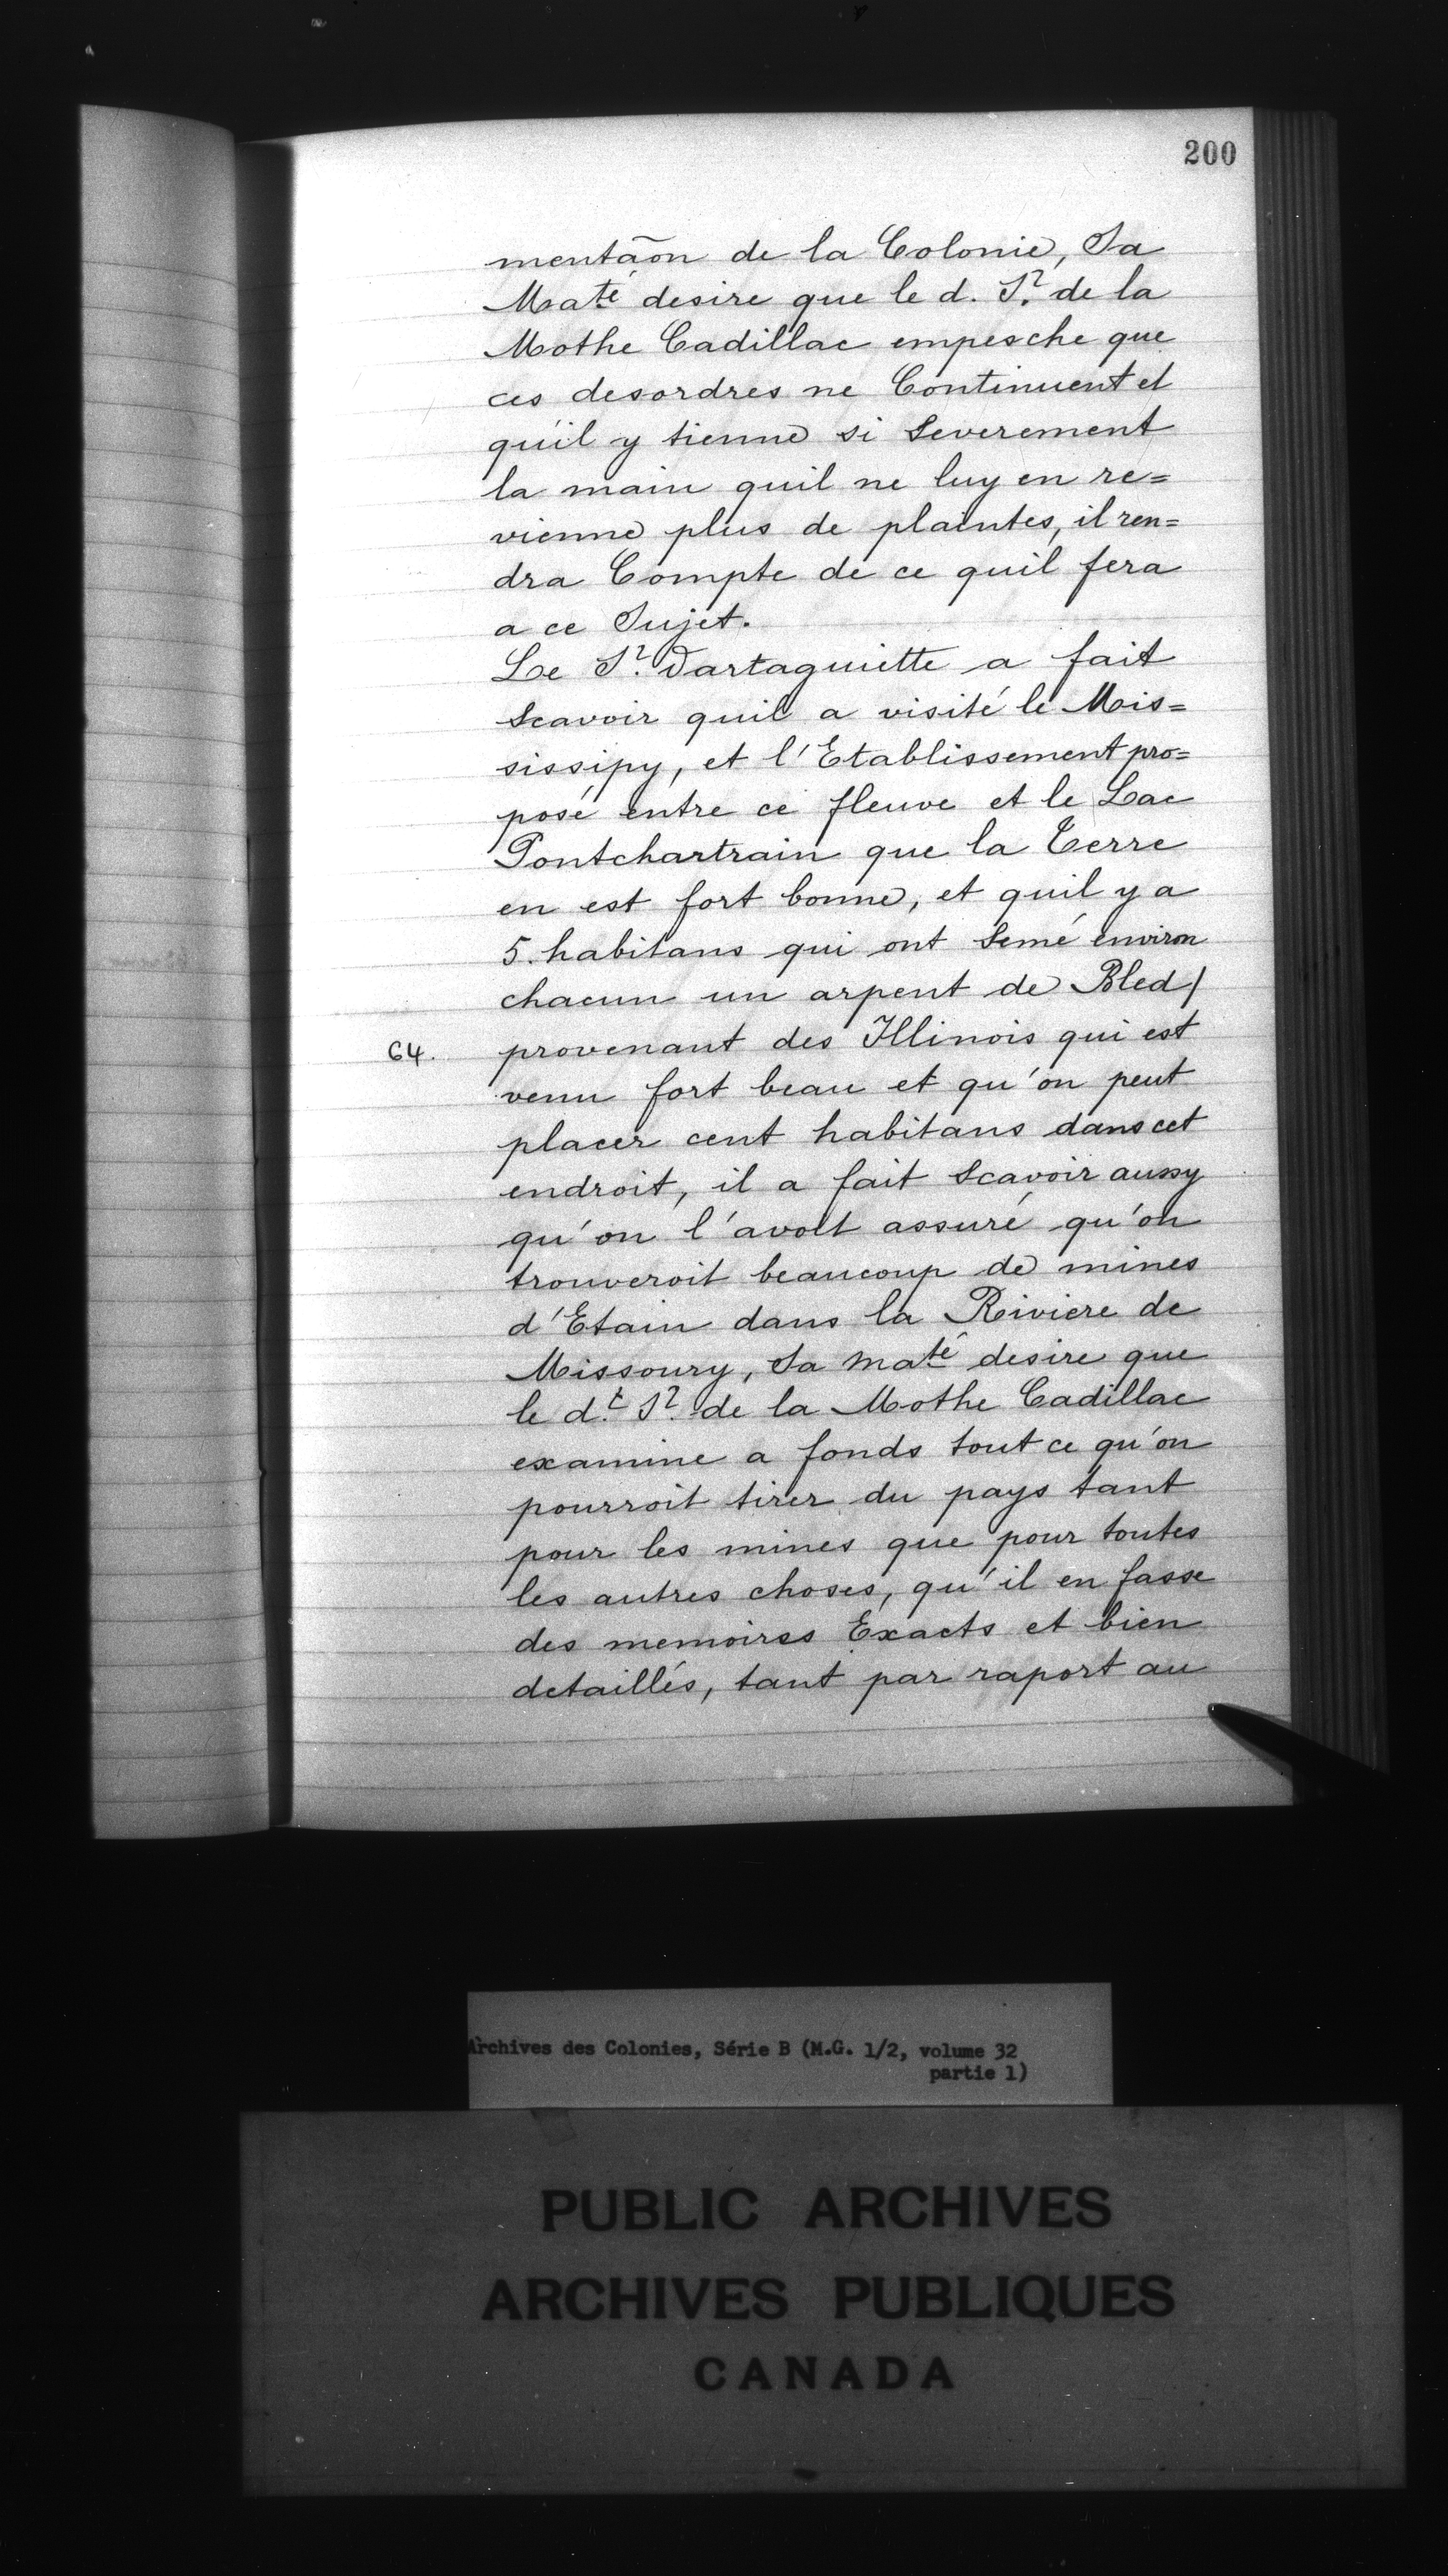 200
mentãon de la Colonie, Sa
Maté desire que le d. Sr. de la
Mothe Cadillac empesche que
ces desordres ne Continuent et
qu'il y tienne si Severement
la main quil ne luy en re=
vienne plus de plaintes, il ren=
dra Compte de ce quil fera
a ce Sujet.
Le Sr. Dartaguiette a fait
Scavoir quil a visité le Mis=
sissipy, et l'Etablissement pro=
posé entre ce fleuve et le Lac
Pontchartrain que la Terre
en est fort bonne, et quil y a
5. habitans qui ont Semé environ
chacun un arpent de Bled/
64. provenant des Illinois qui est
venu fort beau et qu'on peut
placer cent habitans dans cet
endroit, il a fait Scavoir aussy
qu'on l'avoit assuré qu'on
trouveroit beaucoup de mines
d'Etain dans la Riviere de
Missoury, Sa Maté desire que
le dt. Sr. de la Mothe Cadillac
examine a fonds tout ce qu'on
pourroit tirer du pays tant
pour les mines que pour toutes
les autres choses, qu'il en fasse
des memoires Exacts et bien
detaillés, tant par raport au
Archives des Colonies, Série B (M.G. 1/2, volume 32
partie 1)
PUBLIC ARCHIVES
ARCHIVES PUBLIQUES
CANADA